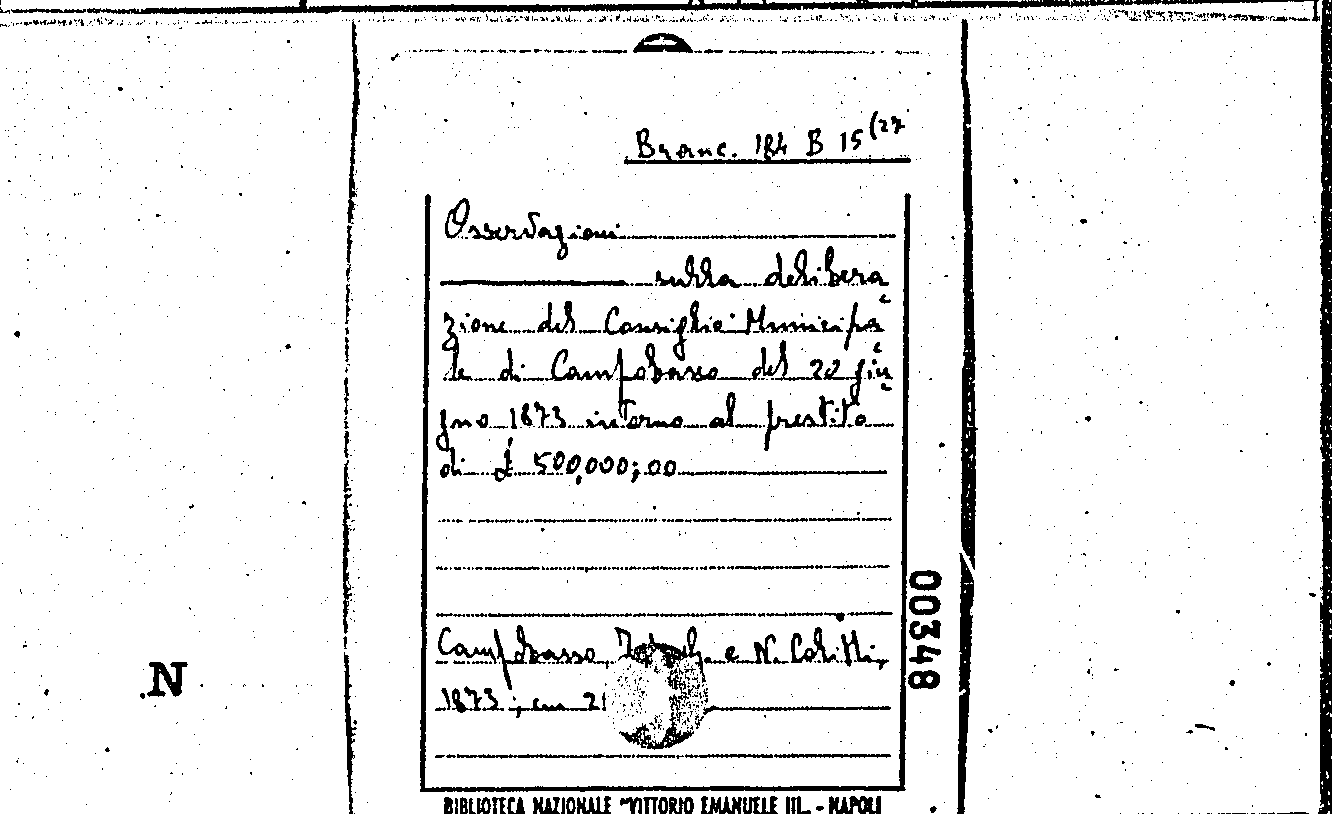 Branc. 184 B 15 (27
Osservazioni
sulla delibera
zione del Consiglio Municipa=
le di Campobasso del 22 giu=
gno 1873 intorno al prestito
di £ 500,000;00
Campobasso, e N. Colitti,
1873; cm 21
00348
N
BIBLIOTECA NAZIONALE "VITTORIO EMANUELE III. - NAPOLI